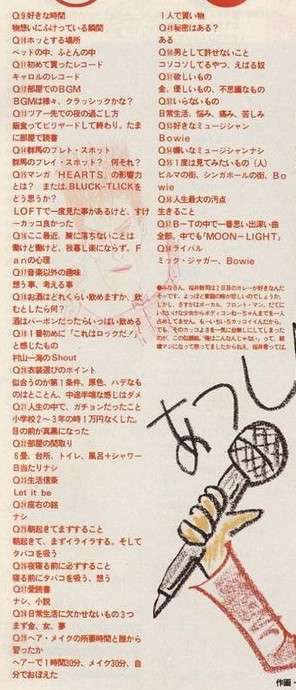 Q⑨好きな時間
物想いにふけっている瞬間
Q⑩ホッとする場所
ベッドの中、ふとんの中
Q⑪初めて買ったレコード
キャロルのレコード
Q⑫部屋でのBGM
BGMは様々、クラッシックかな?
Q⑬ツアー先での夜の過ごし方
飯食ってビリヤードして終わり。たま
に部屋で読書
Q⑭群馬のプレト・スポット
群馬のプレイ・スポット? 何それ?
Q⑮マンガ「HEARTS」の影響力
とは? または、BLUCK-TLICKを
どう思うか?
LOFTで一度見た事があるけど、すげ
ーカッコ良かった
Q⑯ここ最近、腑に落ちないことは
働けど働けど、我暮し楽にならず。F
anの心理
Q⑰音楽以外の趣味
想う事、考える事
Q⑱お酒はどれくらい飲めますか、飲
むとしたら何?
酒はバーボンだったらいっぱい飲める
Q⑲1番初めに「これはロックだ!」
と感じたもの
村山一海のShout
Q⑳衣装選びのポイント
似合うのが第1条件。原色、ハデなも
のはとことん、中途半端な感じはダメ
Q㉑人生の中で、ガチョンだったこと
小学校2〜3年の時1万円なくした。
目の前が真黒になった
Q㉒部屋の間取り
6畳、台所、トイレ、風呂+シャワー
日当たりナシ
Q㉓生活信条
Let it be
Q㉔座右の銘
ナシ
Q㉕朝起きてまずすること
朝起きて、まずイライラする。そして
タバコを吸う
Q㉖夜寝る前に必ずすること
寝る前にタバコを吸う、想う
Q㉗愛読書
ナシ、小説
Q㉘日常生活に欠かせないもの3つ
まず金、女、夢
Q㉙ヘア・メイクの所要時間と誰から
習ったか
ヘアーで1時間30分、メイク30分、自
分でおぼえた
1人で買い物
Q㉚秘密はある?
ある
Q㉛男として許せないこと
コソコソしてるやつ、えばる奴
Q㉜欲しいもの
金、優しいもの、不思議なもの
Q㉝いらないもの
日常生活、悩み、痛み、苦しみ
Q㉞好きなミュージシャン
Bowie
Q㉟嫌いなミュージシャンナシ
Q㊱1度は見てみたいもの(人)
ビルマの街、シンガポールの街、Bo
wie
Q㊲人生最大の汚点
生きること
Q㊳B-Tの中で一番思い出深い曲
全部、中でも「MOON-LIGHT」
Q㊴ライバル
ミック・ジャガー、Bowie
あっし
作画・